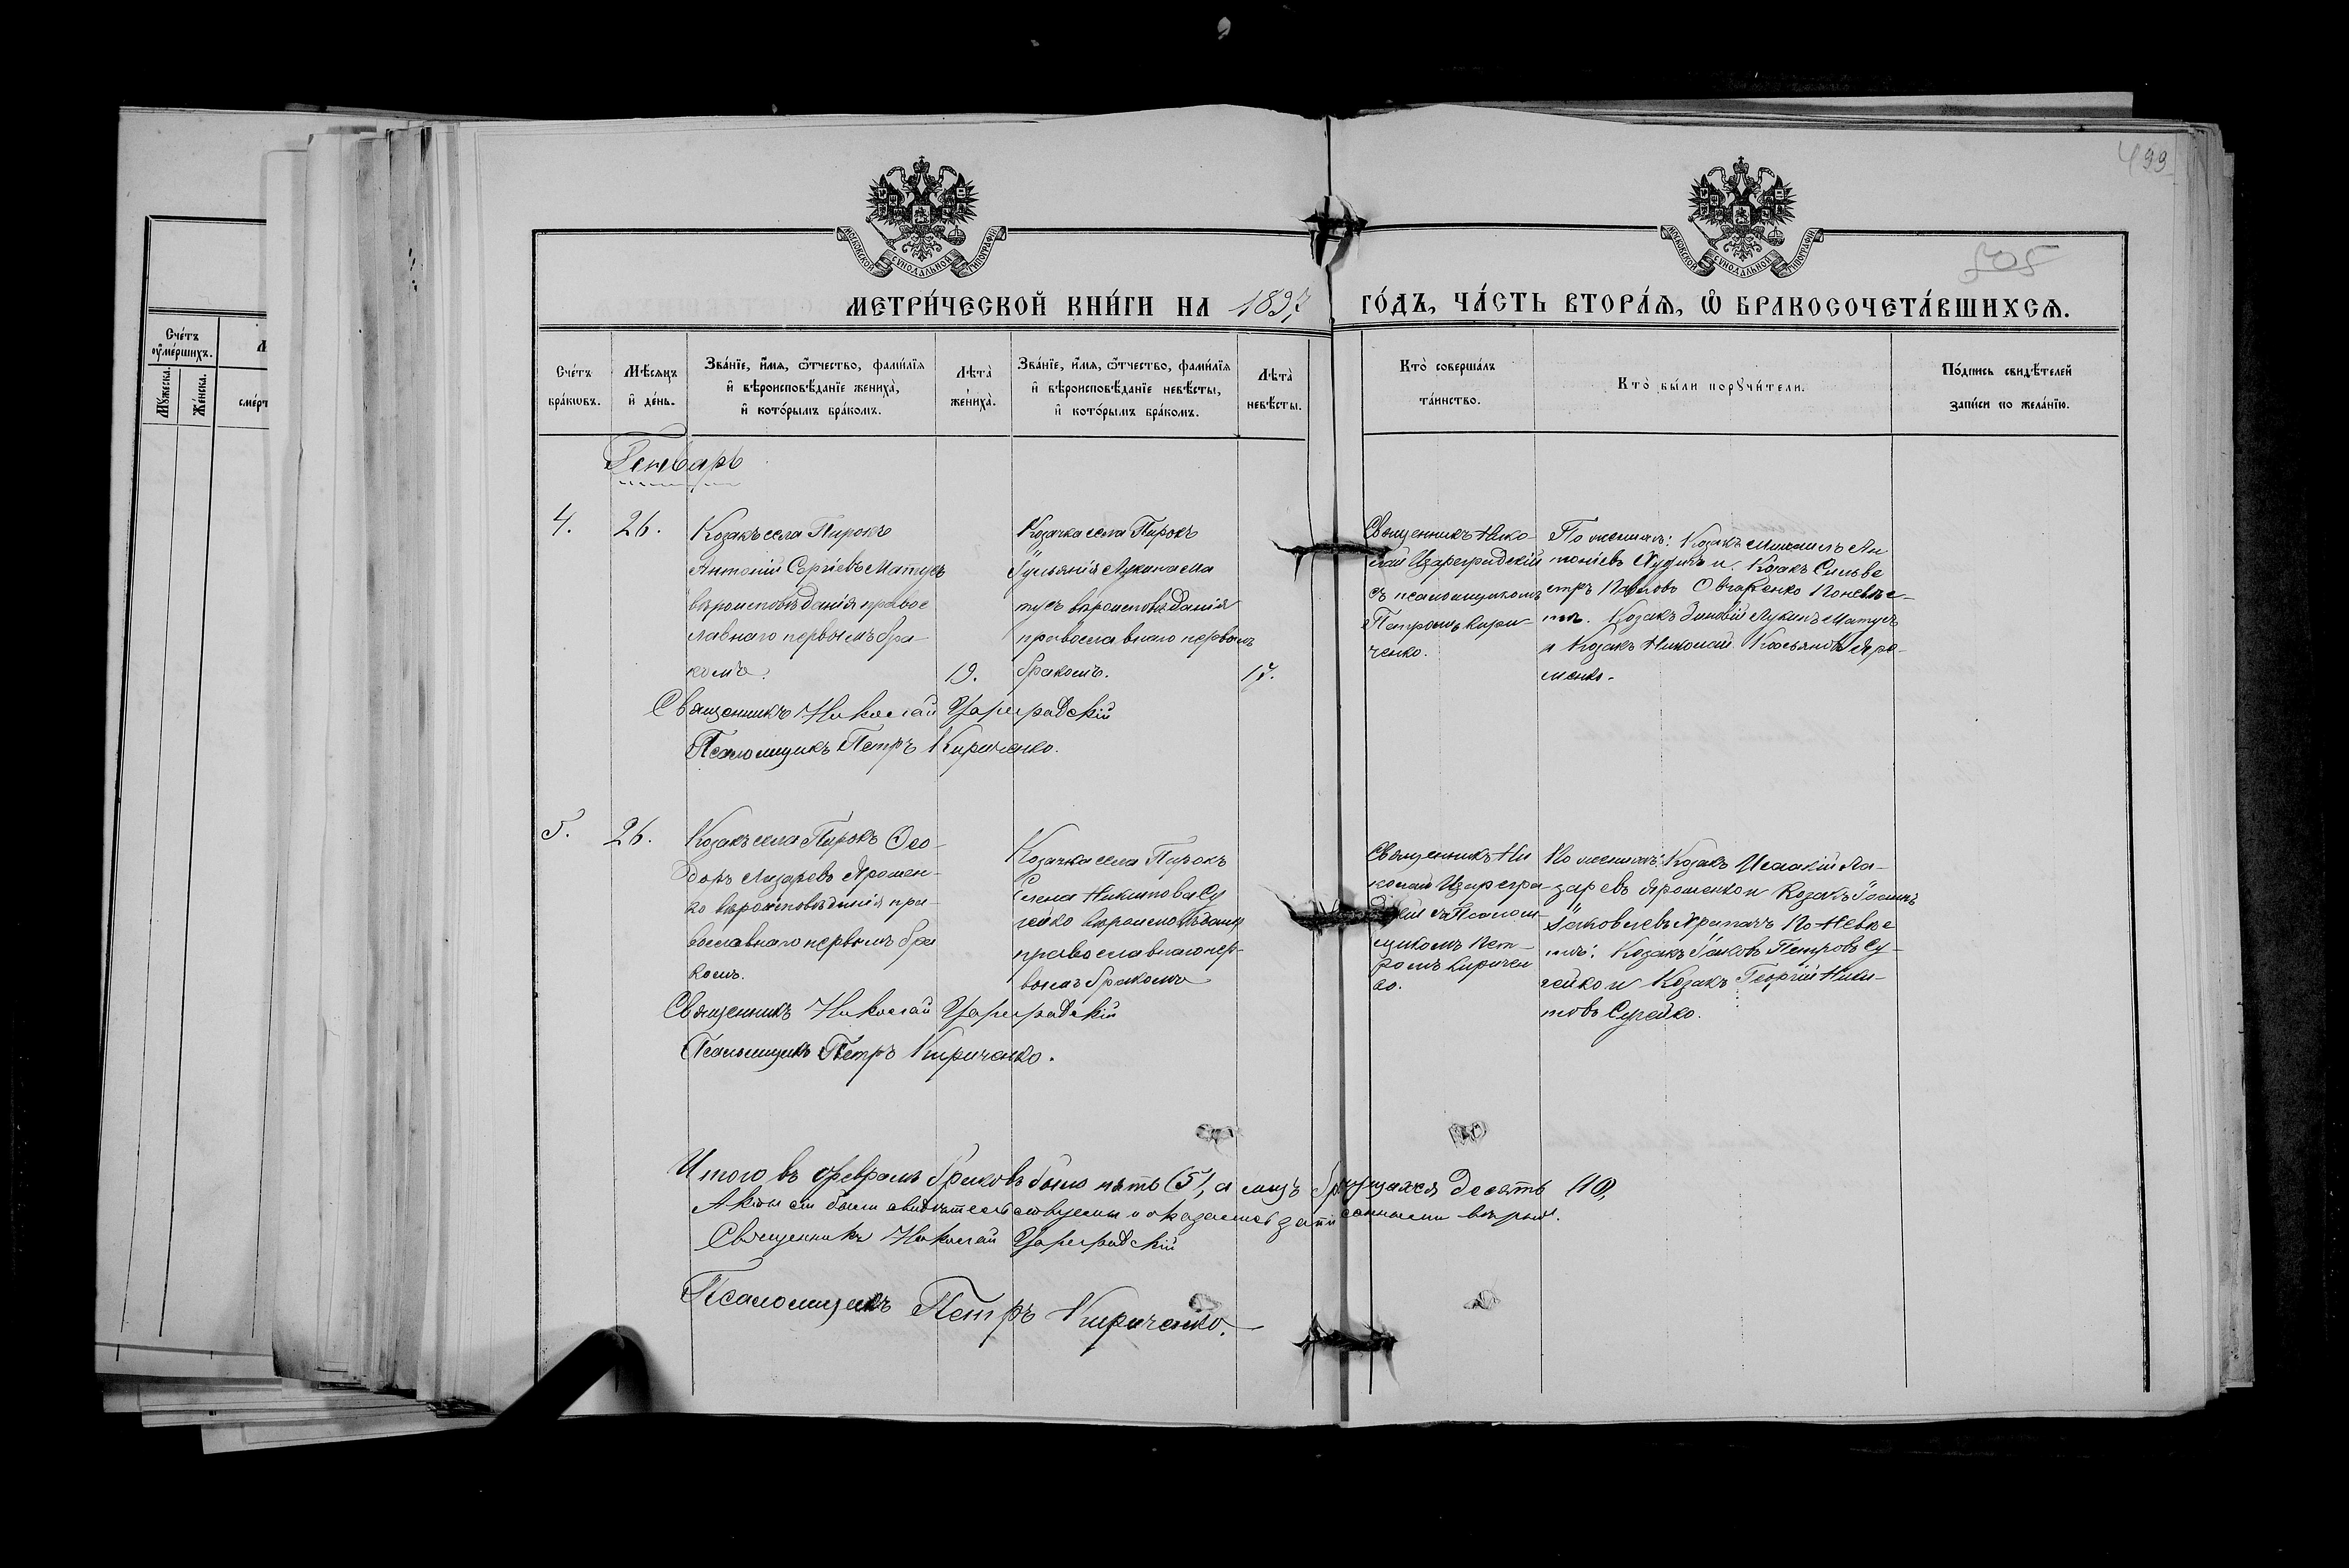 499
505
МОСКОВСКОЙ СУНОДАЛЬНОЙ ТИПОГРАФІИ
МОСКОВСКОЙ СУНОДАЛЬНОЙ ТИПОГРАФІИ
МЕТРИ́ЧЕСКОЙ КНИ́ГИ НА 1897 ГО́ДЪ, ЧА́СТЬ ВТОРА́Я, Ѿ БРАКОСОЧЕТА́ВШИХСЯ.
Сче́тъ
оуме́ршихъ.
Му́жеска.
Же́нска.
сме́рт
Сче́тъ
бра́кωвъ.
Мѣ́сяцъ
и де́нь.
Зва́нїе, и́мя, ѻ́тчество, фами́лїя
и вѣроисповѣ́данїе жениха̀,
и кото́рымъ бра́комъ.
Лѣта̀
жениха̀.
Зва́нїе, и́мя, ѻ́тчество, фами́лїя
и вѣроисповѣ́данїе невѣ́сты,
и кото́рымъ бра́комъ.
Лѣта̀
невѣ́сты.
Кто̀ соверша́лъ
та́инство.
Кто̀ бы́ли поручи́тели.
По́дпись свидѣ́телей
за́писи по жела́нїю.
Генварь
4.
26.
Козакъ села Пирокъ
Антоній Сергіевъ Матусъ
вѣроисповѣданія правос
лавнаго первымъ бра
комъ.
19.
Козачка села Пирокъ
Іуліанія Лукина Ма
тусъ вѣроисповѣданія
православнаго первымъ
бракомъ.
17.
Священникъ Нико-
лай Цареградскій
съ псаломщикомъ
Петромъ Кири-
ченко.
По женихѣ: Козакъ Михаилъ Ан
тоніевъ Худикъ и Козакъ Сильве
стръ Павловъ Овчаренко По невѣс-
тѣ. Козакъ Зиновій Лукинъ Матусъ
и Козакъ Николай Косьяновъ Яро-
менко.
Священникъ Николай Цареградскій
Псаломщикъ Петръ Кириченко.
5.
26.
Козакъ села Пирокъ Ѳео-
доръ Лазаревъ Ярошен-
ко вѣроисповѣданія пра-
вославнаго первымъ бра
комъ.
Козачка села Пирокъ
Елена Никитова Су
гейко вѣроисповѣданія
православнаго пер-
вымъ бракомъ
Священникъ Ни
колай Цареград-
скій съ Псалом-
щикомъ Пет-
ромъ Киричен
ко.
По женихѣ: Козакъ Исаакій Ла-
заревъ Ярошенко и Козакъ
Іаковлевъ Храпачъ По Невѣс
тѣ: Козакъ Іаковъ Петровъ Су-
гейко и Козакъ Георгій Ники-
товъ Сугейко.
Священникъ Николай Цареградскій
Псаломщикъ Петръ Кириченко.
Итого въ февралѣ браковъ было пять (5), а лицъ брачущихся десять (10),
Акты сіи были свидѣтельствуемы и оказались записанными вѣрно.
Священникъ Николай Цареградскій
Псаломщикъ Петръ Кириченко.